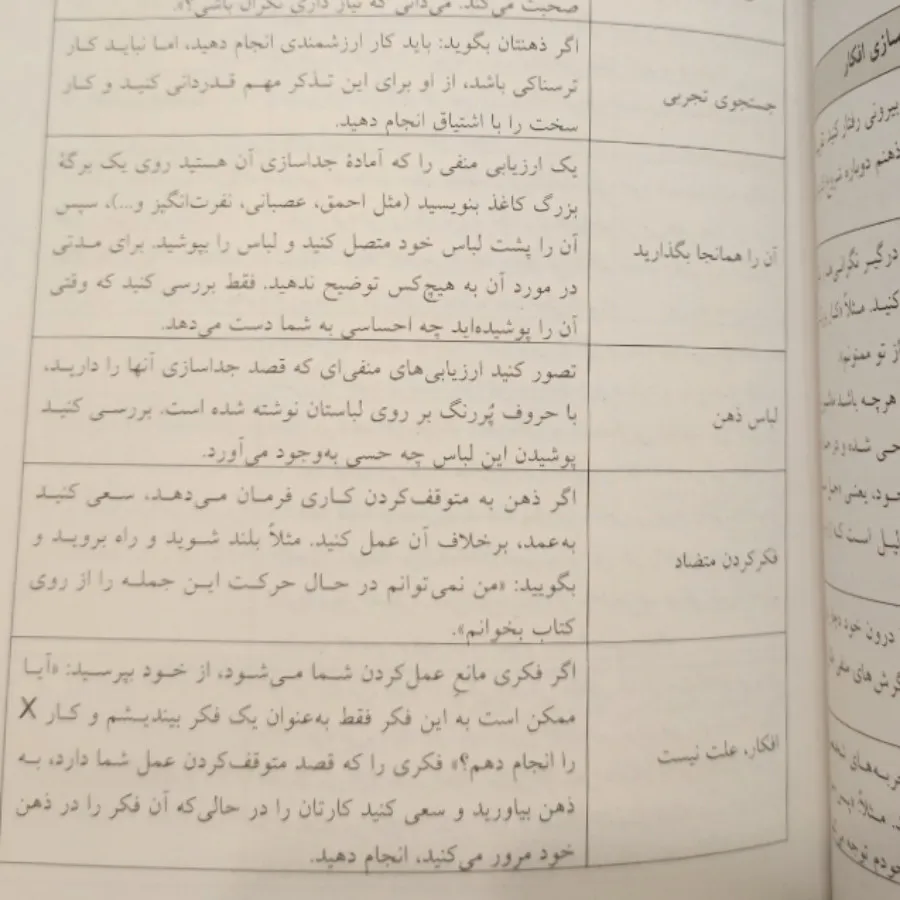 صحبت می‌کند. می‌دانی که نیاز داری نگران باشی؟».
جستجوی تجربی
اگر ذهنتان بگوید: باید کار ارزشمندی انجام دهید، اما نباید کار
ترسناکی باشد، از او برای این تذکر مهم قدردانی کنید و کار
سخت را با اشتیاق انجام دهید.
آن را همانجا بگذارید
یک ارزیابی منفی را که آمادهٔ جداسازی آن هستید روی یک برگهٔ
بزرگ کاغذ بنویسید (مثل احمق، عصبانی، نفرت‌انگیز و...)، سپس
آن را پشت لباس خود متصل کنید و لباس را بپوشید. برای مدتی
در مورد آن به هیچ‌کس توضیح ندهید. فقط بررسی کنید که وقتی
آن را پوشیده‌اید چه احساسی به شما دست می‌دهد.
لباس ذهن
تصور کنید ارزیابی‌های منفی‌ای که قصد جداسازی آنها را دارید،
با حروف پُررنگ بر روی لباستان نوشته شده است. بررسی کنید
پوشیدن این لباس چه حسی به‌وجود می‌آورد.
فکرکردن متضاد
اگر ذهن به متوقف‌کردن کاری فرمان می‌دهد، سعی کنید
به‌عمد، برخلاف آن عمل کنید. مثلاً بلند شوید و راه بروید و
بگویید: «من نمی‌توانم در حال حرکت این جمله را از روی
کتاب بخوانم».
افکار، علت نیست
اگر فکری مانعِ عمل‌کردن شما می‌شود، از خود بپرسید: «آیا
ممکن است به این فکر فقط به‌عنوان یک فکر بیندیشم و کار X
را انجام دهم؟» فکری را که قصد متوقف‌کردن عمل شما دارد، به
ذهن بیاورید و سعی کنید کارتان را در حالی‌که آن فکر را در ذهن
خود مرور می‌کنید، انجام دهید.
سازی افکار
بیرونی رفتار کنید
ذهنم دوباره شروع
درگیر نگرانی
کنید. مثلاً
از تو ممنونم
هرچه باشد
حی شده و در
خود، یعنی
لیل است که
درون خود
گرش‌های منفی
جربه‌های
مثلاً:
خودم توجه